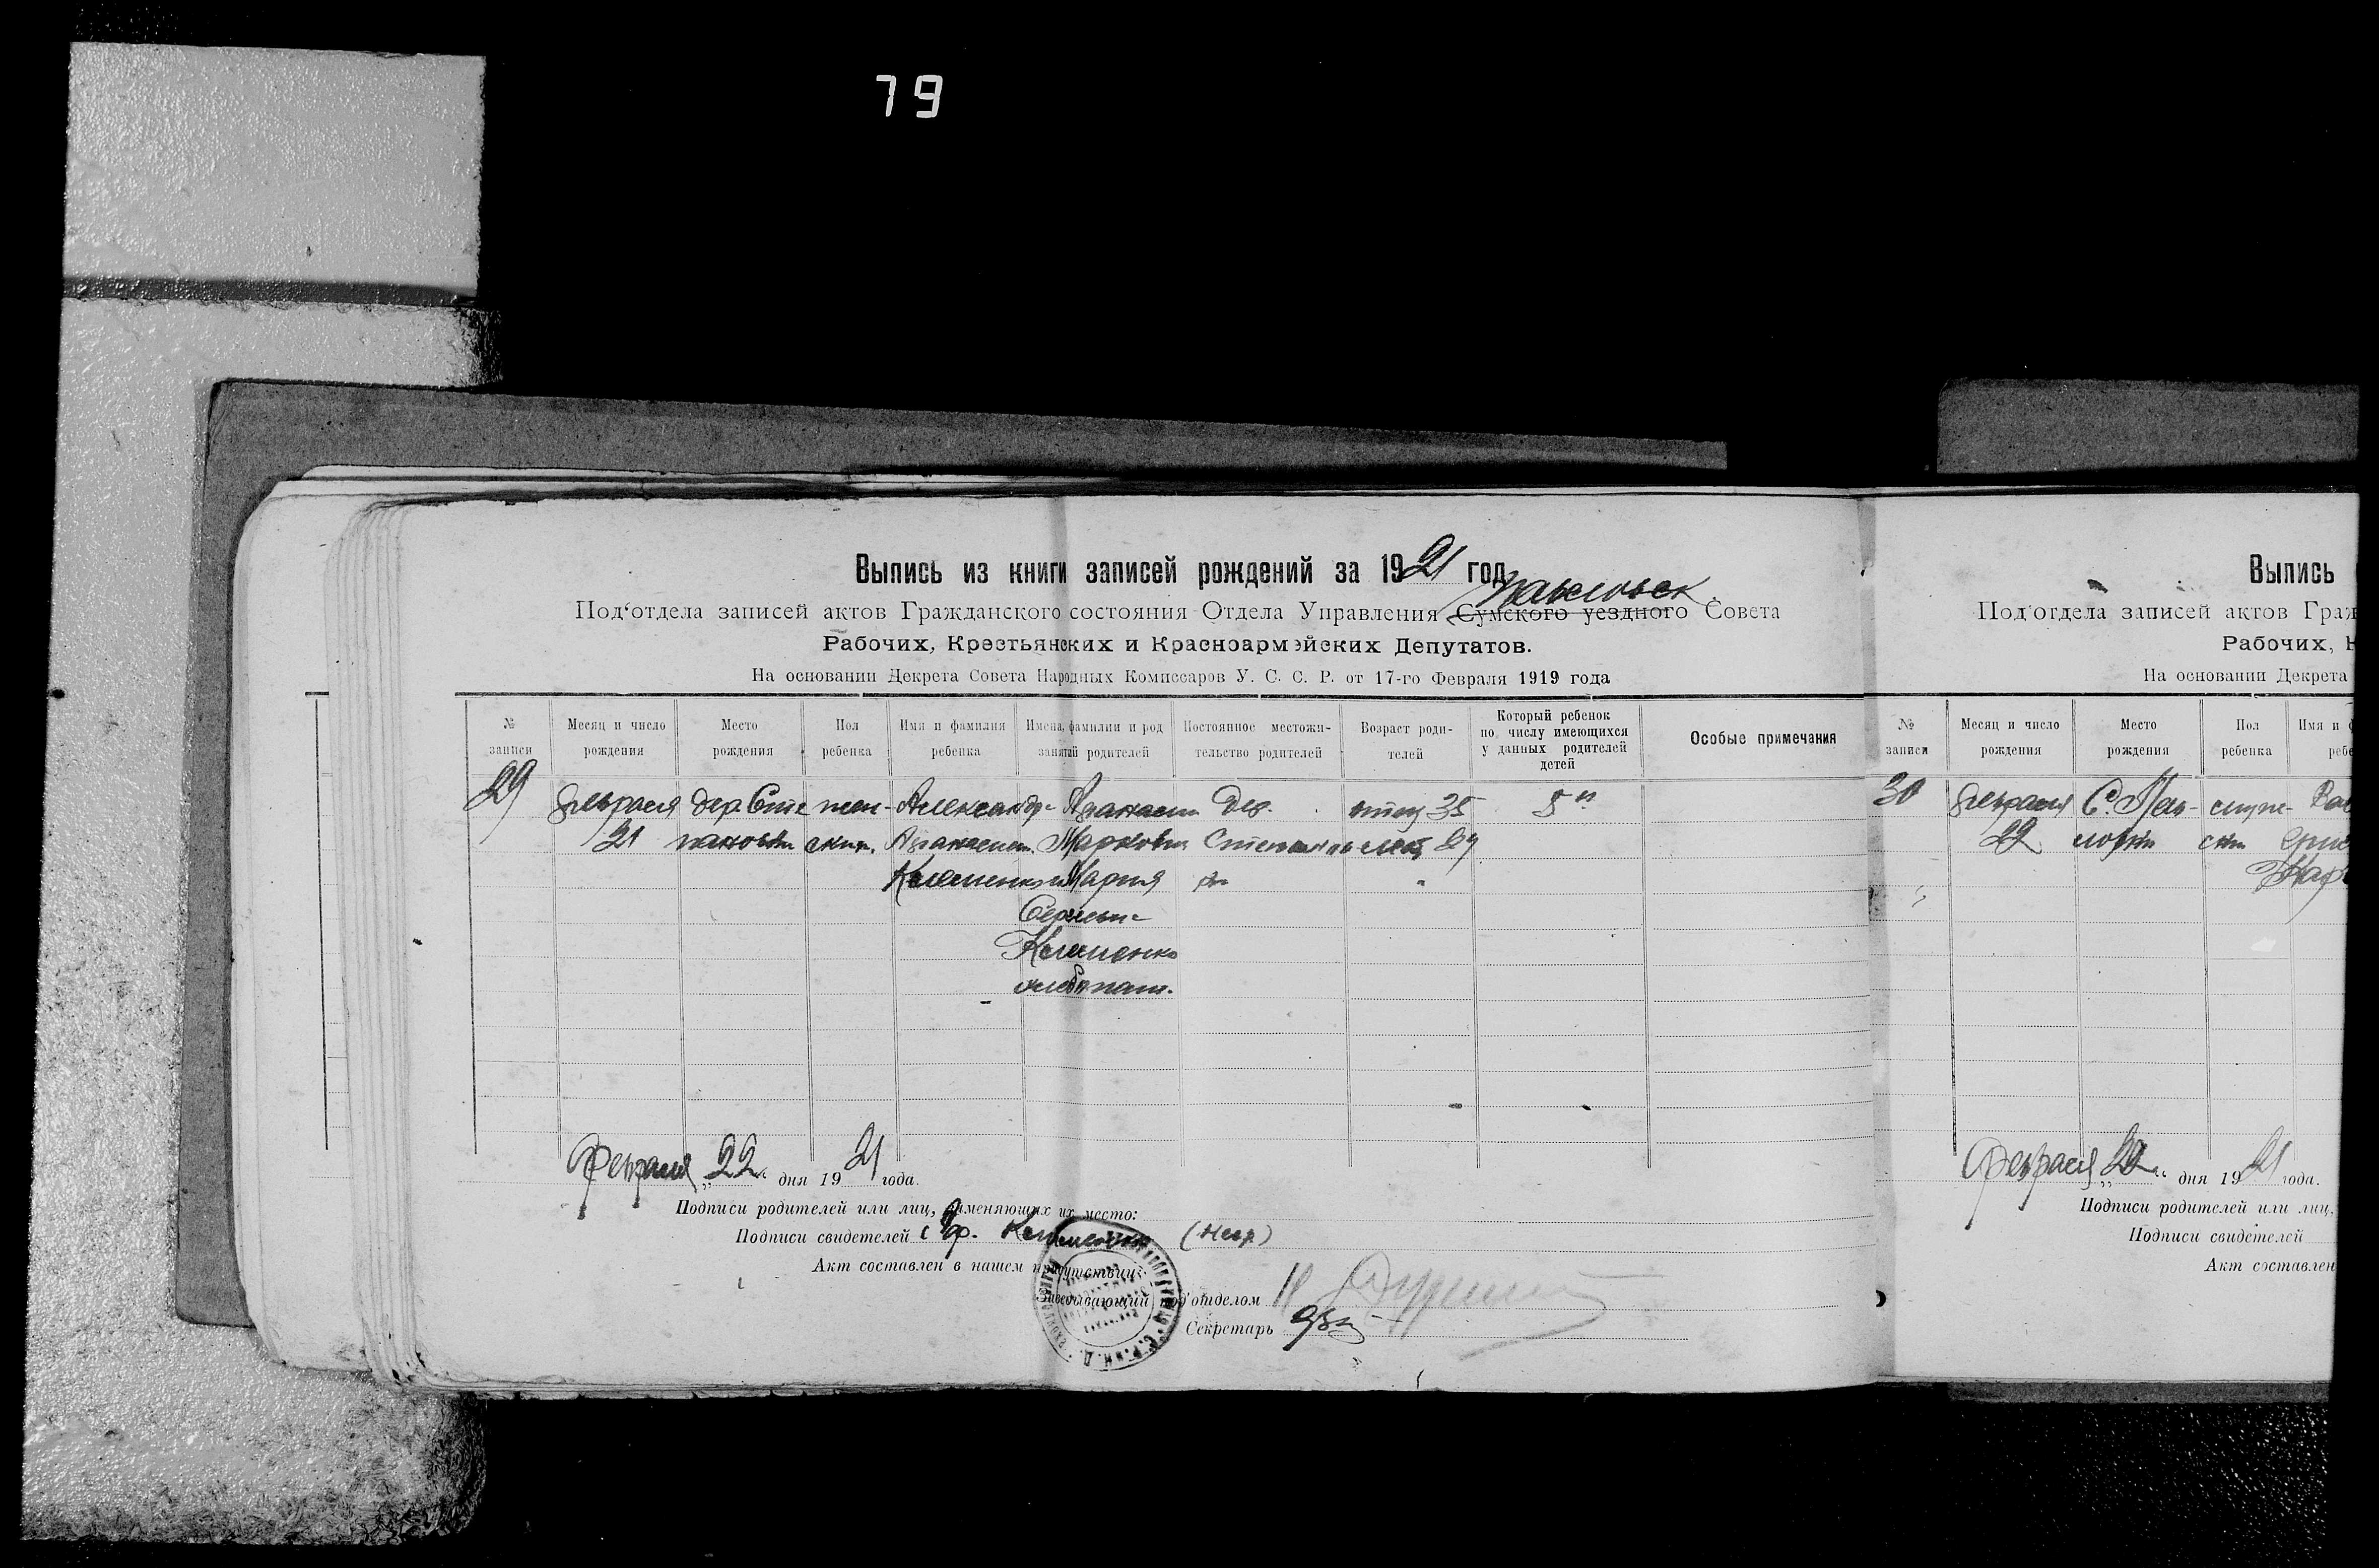 79
Выпись из книги записей рождений за 1921 год
Павловск.
Под‘отдела записей актов Гражданского состояния Отдела Управления Сумского уездного Совета
Рабочих, Крестьянских и Красноармейских Депутатов.
На основании Декрета Совета Народных Комиссаров У. С. С. Р. от 17-го Февраля 1919 года
№ записи
Месяц и число рождения
Место рождения
Пол ребенка
Имя и фамилия ребенка
Имена, фамилии и род занятий родителей
Постоянное местожительство родителей
Возраст родителей
Который ребенок по числу имеющихся у данных родителей детей
Особые примечания
29 февраля дер. Сте жен- Александр- Афанасии Дер. отец 35 5й
21 пановки ским. Афанасиев. Маркович Степановка
Клименко Мария
Сергеев-
Клименко
хлебопаш.
Февраля „22“ дня 1921 года.
Подписи родителей или лиц, заменяющих их место:
Подписи свидетелей Гр. Клименко (негр)
Акт составлен в нашем присутствии:
Заведывающий под‘отделом
Секретарь
Выпись
Под‘отдела записей актов Граж
Рабочих, К
На основании Декрета
№ записи
Месяц и число рождения
Место рождения
Пол ребенка
Имя и ф
ребе
30 февраля С. Пав-
22 ловки
Февраля „22“ дня 1921 года.
Подписи родителей или лиц,
Подписи свидетелей
Акт составлен